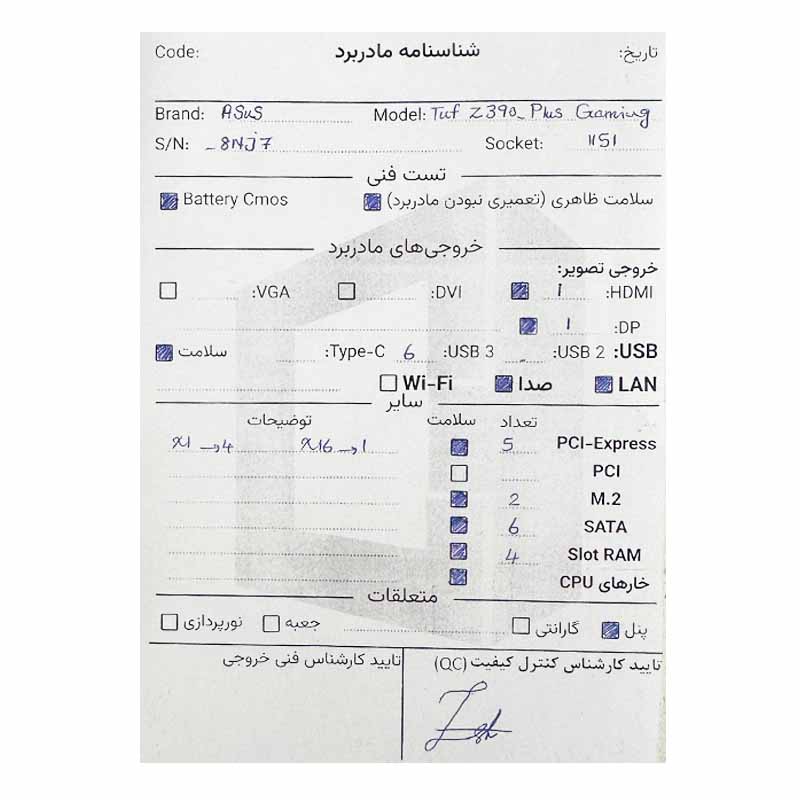 Code: شناسنامه مادربرد تاریخ:
Brand: ASUS Model: Tuf Z390_Plus Gaming
S/N: _8NJ7 Socket: 1151
تست فنی
سلامت ظاهری (تعمیری نبودن مادربرد) Battery Cmos
خروجی‌های مادربرد
خروجی تصویر:
HDMI: 1 DVI: VGA:
DP: 1
USB: USB 2: _ USB 3: 6 Type-C: سلامت
LAN صدا Wi-Fi
سایر
تعداد سلامت توضیحات
PCI-Express 5 x16→1 x1→4
PCI
M.2 2
SATA 6
Slot RAM 4
خارهای CPU
متعلقات
پنل گارانتی جعبه نورپردازی
تایید کارشناس کنترل کیفیت (QC) تایید کارشناس فنی خروجی